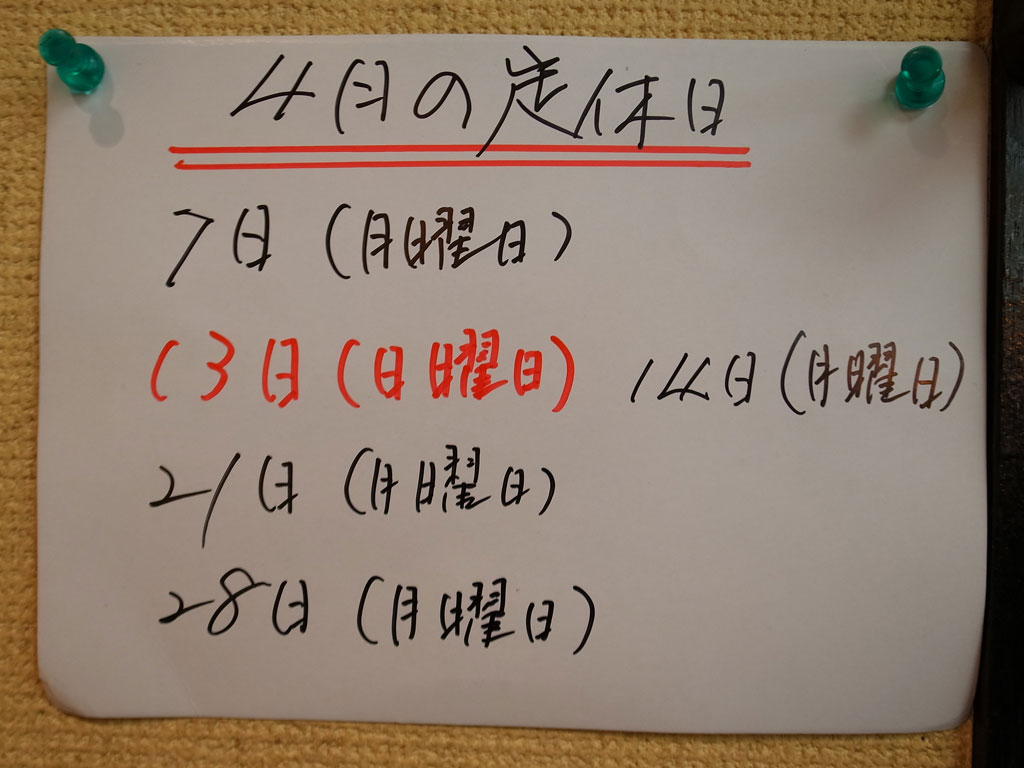 4月の定休日
7日（月曜日）
13日（日曜日） 14日（月曜日）
21日（月曜日）
28日（月曜日）